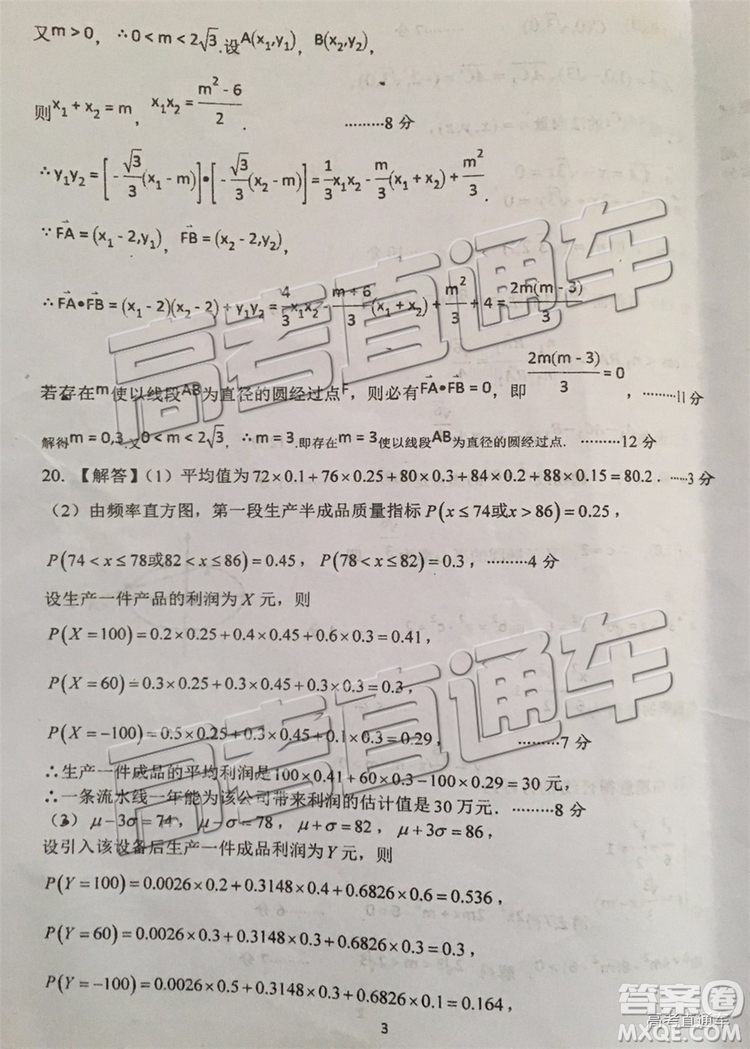 又m＞0，∴0＜m＜2√3.设A(x₁,y₁)，B(x₂,y₂)，
则x₁+x₂=m，x₁x₂=(m²-6)/2. ………8分
∴y₁y₂=[-√3/3(x₁-m)]•[-√3/3(x₂-m)]=1/3x₁x₂-m/3(x₁+x₂)+m²/3.
∵FA=(x₁-2,y₁)，FB=(x₂-2,y₂)，
∴FA•FB=(x₁-2)(x₂-2)+y₁y₂=4/3x₁x₂-(m+6)/3(x₁+x₂)+m²/3+4=2m(m-3)/3
若存在m使以线段AB为直径的圆经过点F，则必有FA•FB=0，即2m(m-3)/3=0，………11分
解得m=0,3.又0＜m＜2√3，∴m=3.即存在m=3使以线段AB为直径的圆经过点. ………12分
20.【解答】（1）平均值为72×0.1+76×0.25+80×0.3+84×0.2+88×0.15=80.2．……3分
（2）由频率直方图，第一段生产半成品质量指标P(x≤74或x>86)=0.25，
P(74<x≤78或82<x≤86)=0.45，P(78<x≤82)=0.3，………4分
设生产一件产品的利润为X元，则
P(X=100)=0.2×0.25+0.4×0.45+0.6×0.3=0.41，
P(X=60)=0.3×0.25+0.3×0.45+0.3×0.3=0.3，
P(X=-100)=0.5×0.25+0.3×0.45+0.1×0.3=0.29， ………7分
∴生产一件成品的平均利润是100×0.41+60×0.3-100×0.29=30元，
∴一条流水线一年能为该公司带来利润的估计值是30万元．………8分
（3）μ-3σ=74，μ-σ=78，μ+σ=82，μ+3σ=86，
设引入该设备后生产一件成品利润为Y元，则
P(Y=100)=0.0026×0.2+0.3148×0.4+0.6826×0.6=0.536，
P(Y=60)=0.0026×0.3+0.3148×0.3+0.6826×0.3=0.3，
P(Y=-100)=0.0026×0.5+0.3148×0.3+0.6826×0.1=0.164，
3
高考直通车
高考直通车
答案圈
高考直通车
MXQE.COM